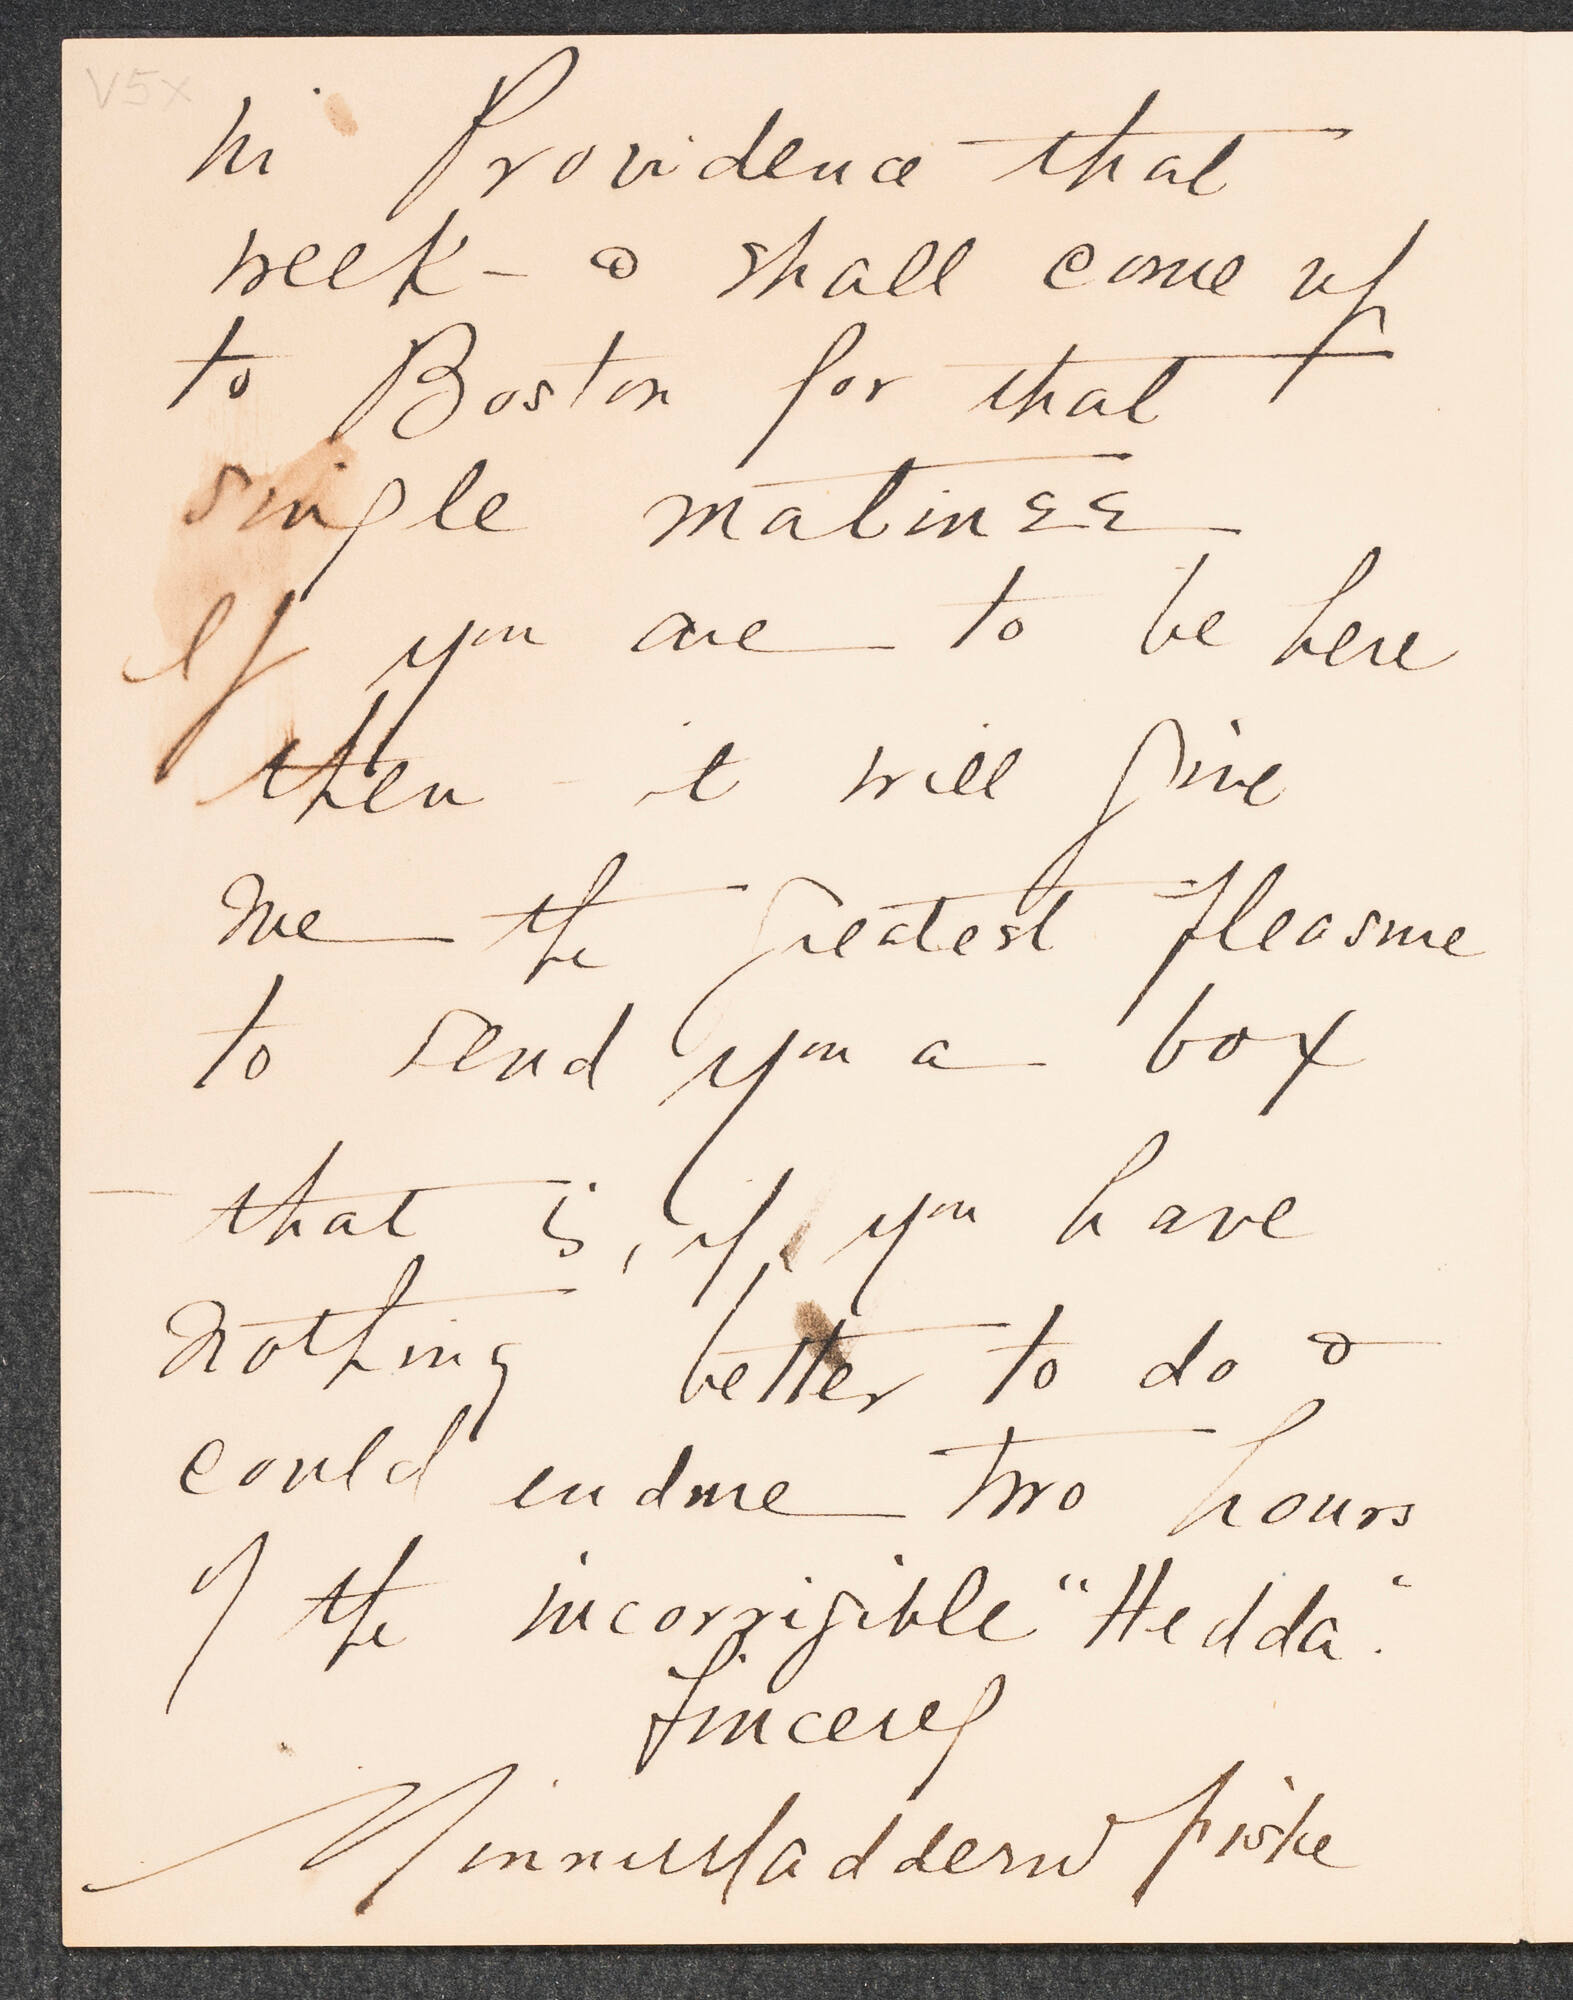 V5x
in Providence that
week - & shall come up
to Boston for that
single matinee
If you are to be here
then - it will give
me the greatest pleasure
to send you a box
- that is, if you have
nothing better to do &
could endure two hours
of the incorrigible "Hedda".
Sincerely
Minnie Maddern Fiske